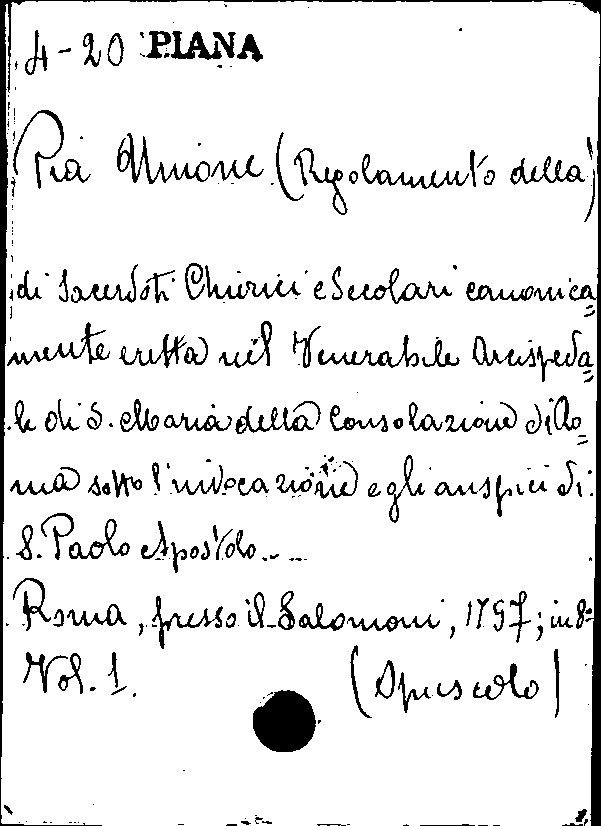 4-20 PIANA
Pia Unione (Regolamento della)
di Sacerdoti Chierici e Secolari canonica=
mente eretta nel Venerabile Arcispeda=
le di S. Maria della Consolazione di Ro=
ma sotto l'invocazione e gli auspici di
S. Paolo Apostolo...
Roma, presso il Salomoni, 1797; in 8º
Vol. 1. (Opuscolo)